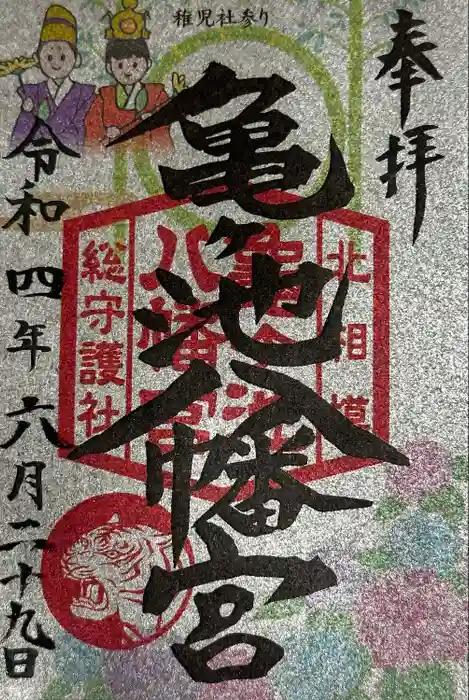 稚児社参り
奉拝
亀ヶ池八幡宮
北相模
亀ヶ池
八幡宮
総守護社
令和四年六月二十九日